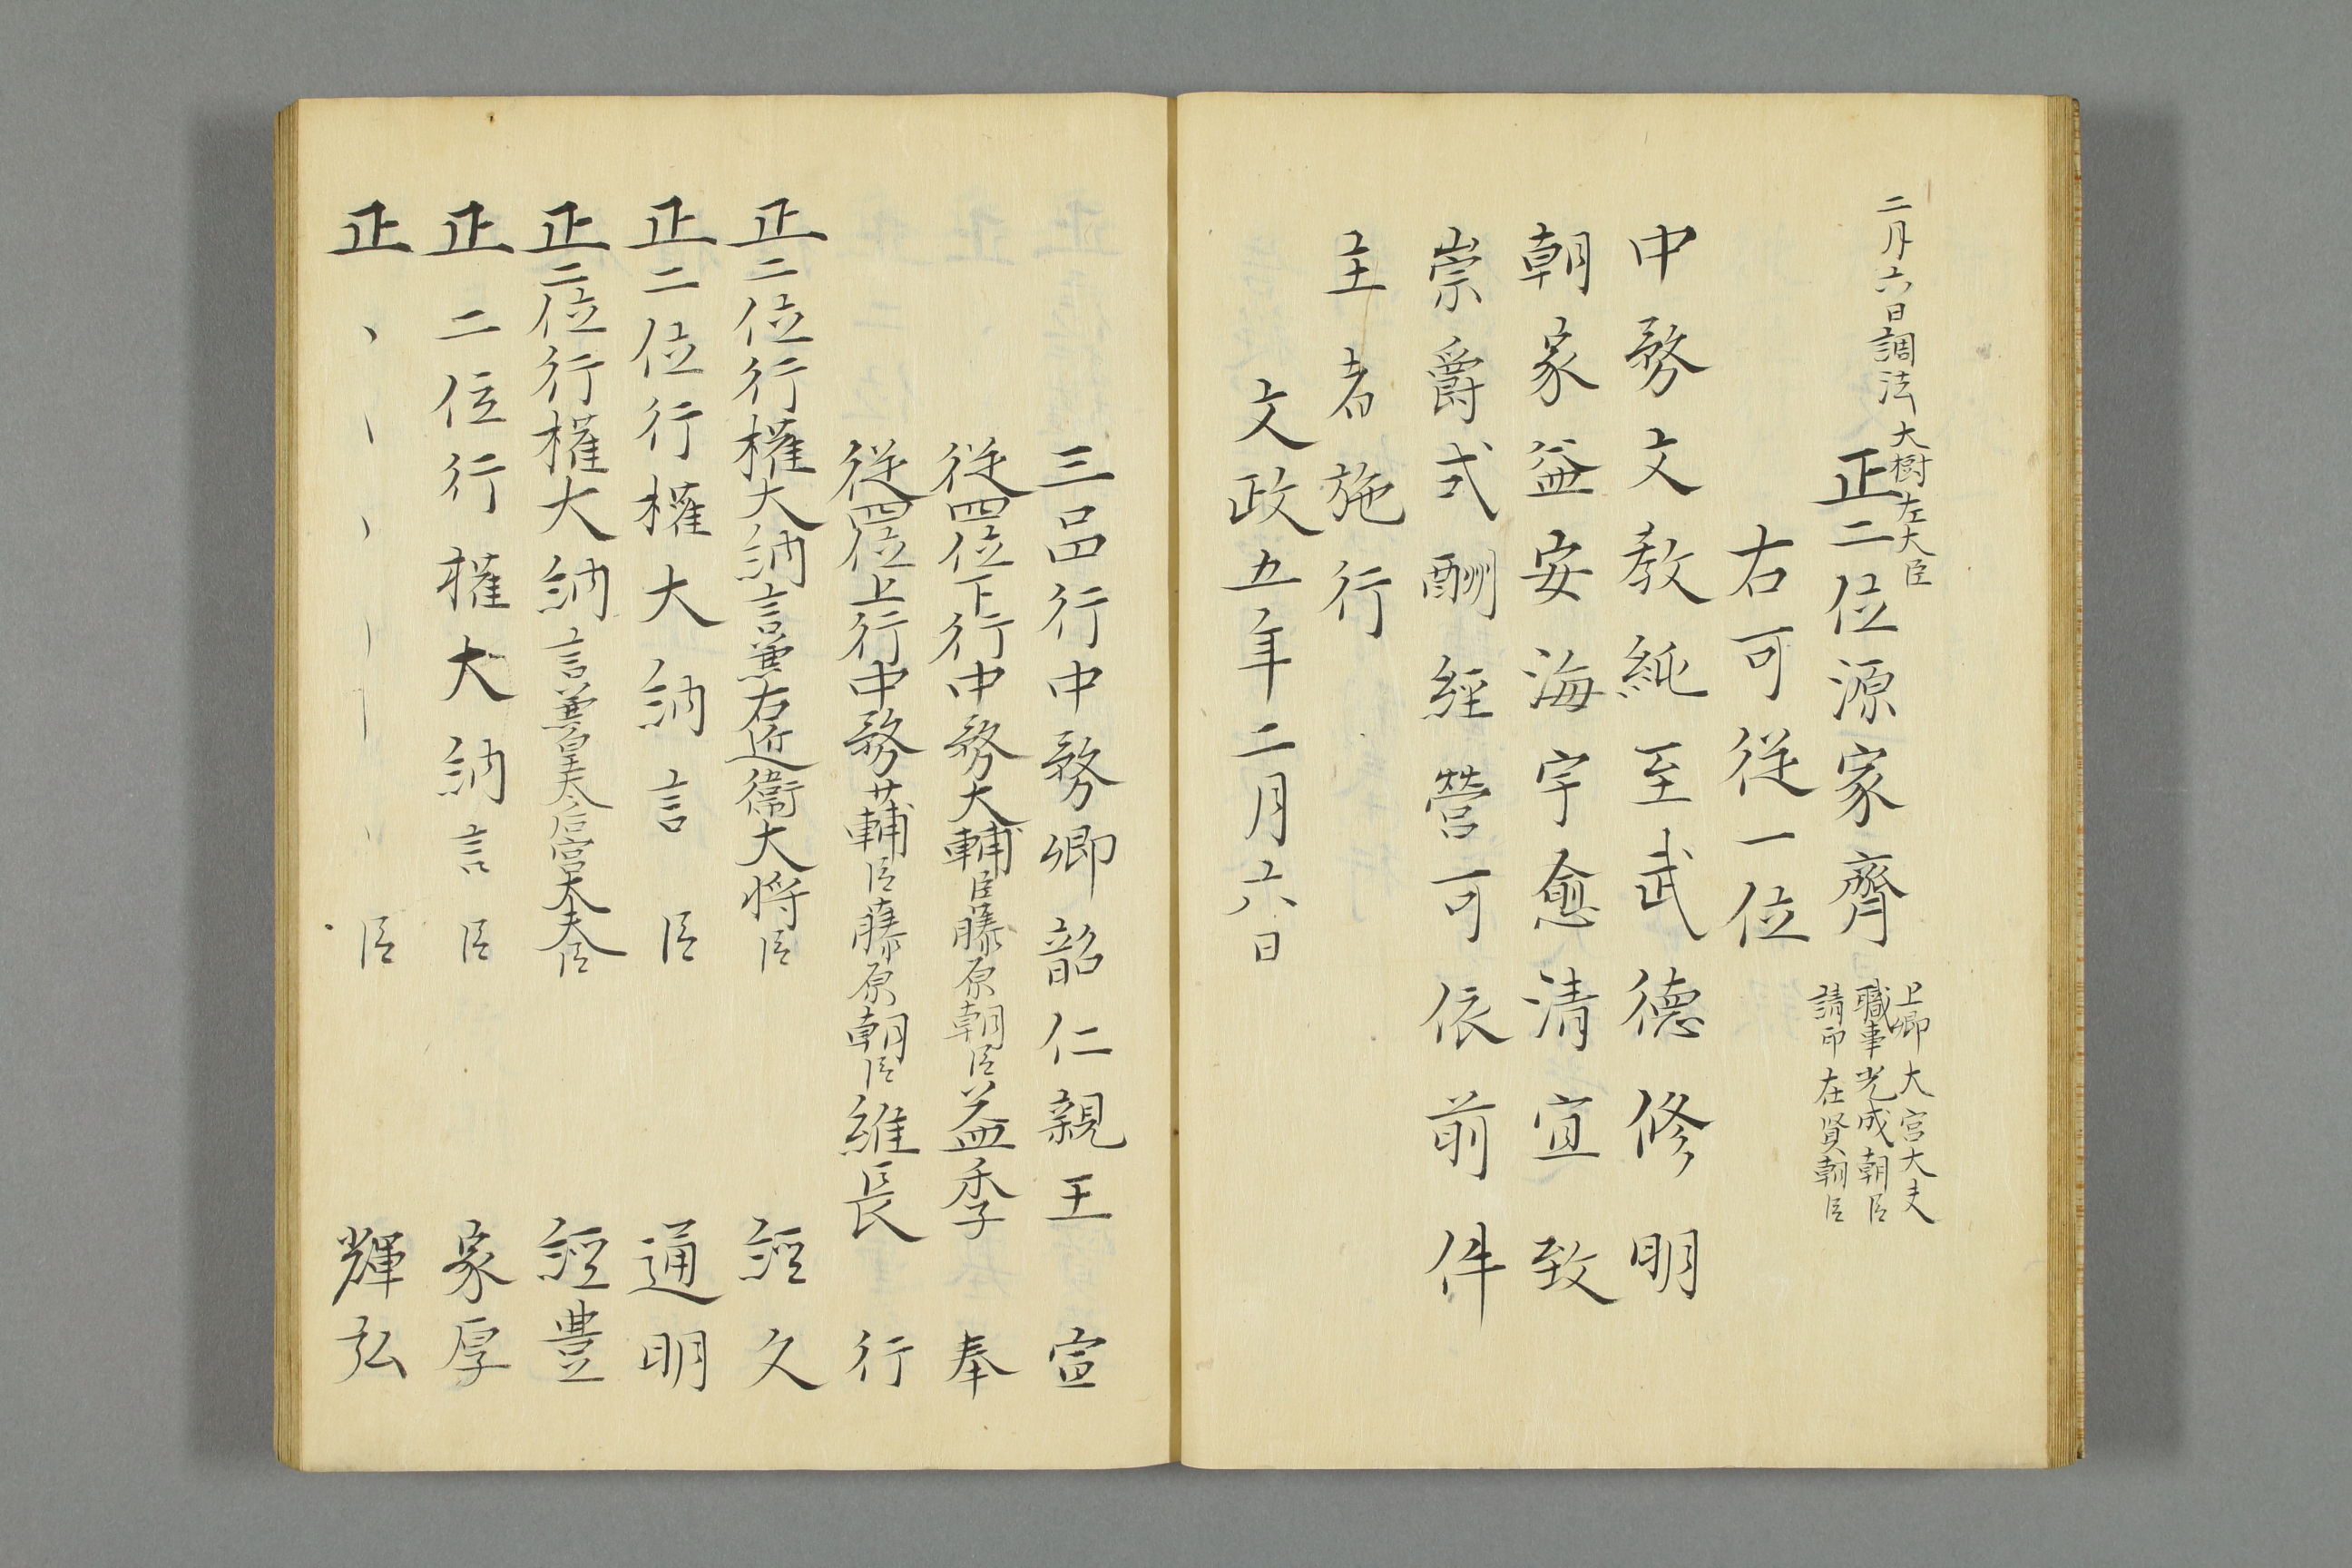 二月六日調法 大樹左大臣
正二位源家齊
上卿 大宮大夫
職事 光成朝臣
請印 在賢朝臣
右可従一位
中務文教純至武徳修明
朝家益安海宇愈清宣致
崇爵式酬経営可依前件
主者施行
文政五年二月六日
三品行中務卿韶仁親王宣
従四位下行中務大輔臣藤原朝臣益季奉
従四位上行中務権輔臣藤原朝臣維長行
正二位行権大納言兼右近衛大将臣経久
正二位行権大納言臣通明
正二位行権大納言兼皇太后宮大夫臣経豊
正二位行権大納言臣家厚
正丶丶丶丶臣輝弘